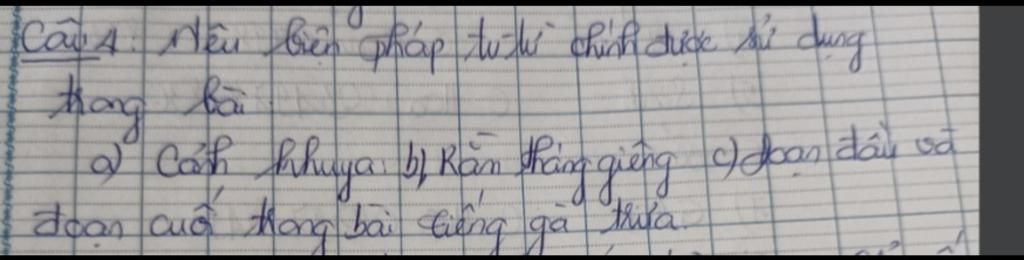 Câu 4: Nêu biện pháp tu từ chính được sử dụng
trong bài
a) Cảnh khuya. b) Rằm tháng giêng c) đoạn đầu và
đoạn cuối trong bài tiếng gà trưa.